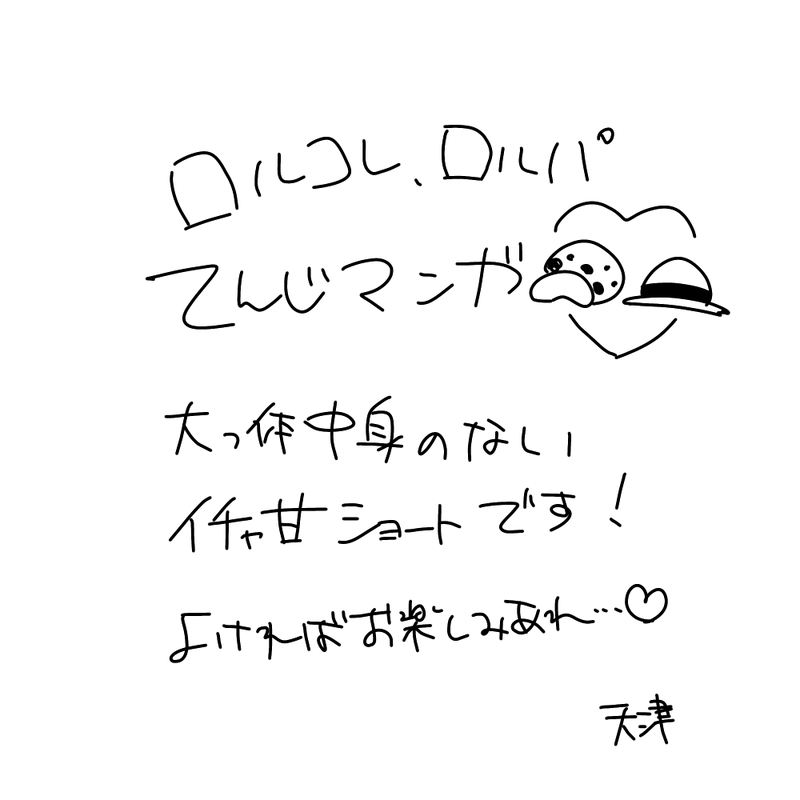 ロルコレ、ロルパ
てんじマンガ
大っ体中身のない
イチャ甘ショートです!
よければお楽しみあれ…♡
天津